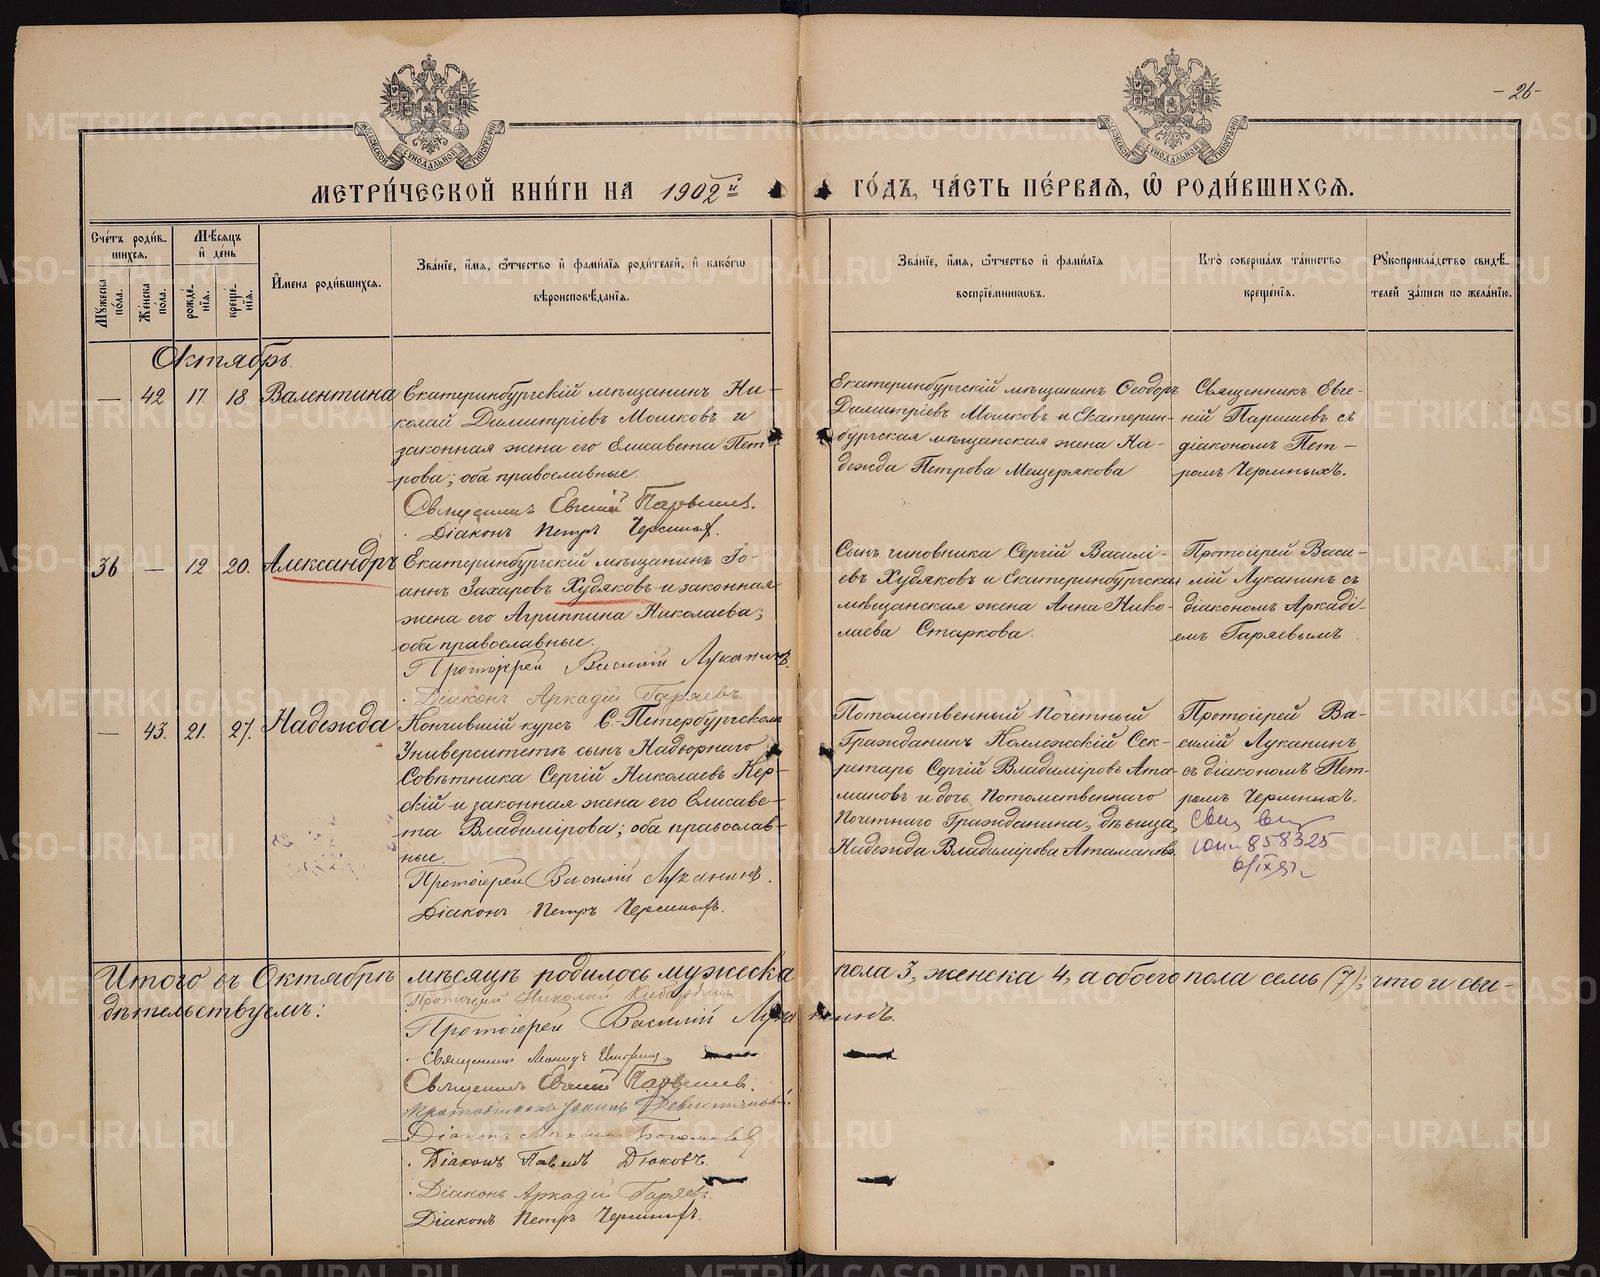 - 26 -
МЕТРИ́ЧЕСКОЙ КНИ́ГИ НА 1902й ГО́ДЪ, ЧА́СТЬ ПЕ́РВАЯ, Ѡ РОДИ́ВШИХСЯ.
Сче́тъ роди́в-
шихся.
Му́жеска по́ла.
Же́нска по́ла.
Мѣ́сяцъ и де́нь
рожде́-
нїя.
креще́-
нїя.
И҆мена роди́вшихся.
Зва́нїе, и҆́мя, ѻ҆́тчество и҆ фами́лїя роди́телей, и҆ како́гѡ
вѣроисповѣ́данїя.
Зва́нїе, и҆́мя, ѻ҆́тчество и҆ фами́лїя
воспрїе́мниковъ.
Кто̀ соверша́лъ та́инство
креще́нїя.
Рꙋкоприкла́дство свидѣ́-
телей за́писи по жела́нїю.
Октябрь.
— 42 17. 18. Валентина
Екатеринбургскій мѣщанинъ Ни-
колай Димитріевъ Мошковъ и
законная жена его Елисавета Пет-
рова; оба православные.
Священникъ Евгеній
Діаконъ Петръ Чермныхъ.
Екатеринбургскій мѣщанинъ Ѳеодоръ
Димитріевъ Мошковъ и Екатерин-
бургская мѣщанская жена На-
дежда Петрова Мещерякова
Священникъ Евге-
ній съ
діакономъ Пет-
ромъ Чермныхъ.
36 — 12 20. Александръ
Екатеринбургскій мѣщанинъ Іо-
аннъ Захаровъ Худяковъ и законная
жена его Агриппина Николаева;
оба православные.
Протоіерей Василій Луканинъ.
Діаконъ Аркадій Гаряевъ.
Сынъ чиновника Сергій Василі-
евъ Худяковъ и Екатеринбургская
мѣщанская жена Анна Нико-
лаева Старкова.
Протоіерей Васи-
лій Луканинъ съ
діакономъ Аркаді-
емъ Гаряевымъ
— 43. 21. 27. Надежда
Кончившій курсъ С.-Петербургскомъ
Университетѣ сынъ Надворнаго
Совѣтника Сергій Николаевъ Кер-
скій и законная жена его Елисаве-
та Владимірова; оба православ-
ные.
Протоіерей Василій Луканинъ.
Діаконъ Петръ Чермныхъ.
Потомственный Почетный
Гражданинъ Коллежскій Сек-
ретарь Сергій Владиміровъ Ата-
мановъ и дочь Потомственнаго
Почетнаго Гражданина, дѣвица
Надежда Владимірова Атаманова.
Протоіерей Ва-
силій Луканинъ
съ діакономъ Пет-
ромъ Чермныхъ.
858325
Итого въ Октябрѣ мѣсяцѣ родилось мужеска пола 3, женска 4, а обоего пола семь (7); что и сви-
дѣтельствуемъ:
Протоіерей Николай
Протоіерей Василій Луканинъ.
Священникъ Леонидъ
Священникъ Евгеній
Протодіаконъ Іоаннъ
Діаконъ
Діаконъ Павелъ Дюковъ.
Діаконъ Аркадій Гаряевъ.
Діаконъ Петръ Чермныхъ.
METRIKI.GASO-URAL.RU